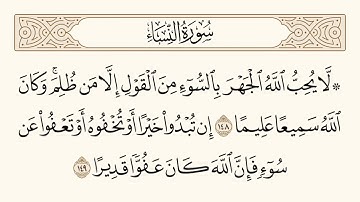 سُورَةُ النِّسَاءِ
۞ لَّا يُحِبُّ ٱللَّهُ ٱلْجَهْرَ بِٱلسُّوٓءِ مِنَ ٱلْقَوْلِ إِلَّا مَن ظُلِمَ ۚ وَكَانَ
ٱللَّهُ سَمِيعًا عَلِيمًا ١٤٨ إِن تُبْدُوا۟ خَيْرًا أَوْ تُخْفُوهُ أَوْ تَعْفُوا۟ عَن
سُوٓءٍ فَإِنَّ ٱللَّهَ كَانَ عَفُوًّا قَدِيرًا ١٤٩